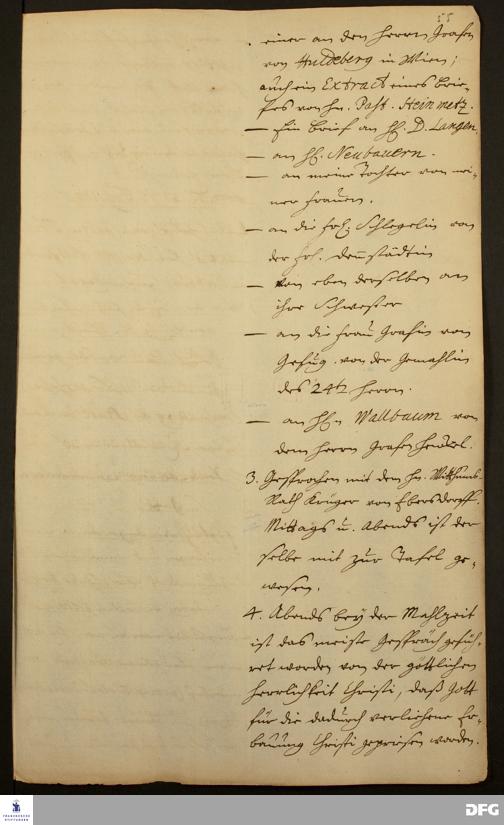 55
einer an den Herrn Grafen
von Huldeberg in Wien;
auch ein Extract eines Brie-
fes von Hn. Past. Steinmetz.
— Ein Brief an H. D. Langen.
— an H. Neubauern.
— an meine Tochter von mei-
ner Frauen.
— an die Frl. Schlegelin von
der Frl.
— von eben derselben an
ihre Schwester
— an die Frau Gräfin von
von der Gemahlin
des 24t Herrn.
— an H.n Wallbaum von
dem Herrn Grafen Henckel.
3. Gesprochen mit dem Hn.
Rath Krüger von Ebersdorff.
Mittags u. Abends ist der
selbe mit zur Tafel ge-
wesen.
4. Abends bey der Mahlzeit
ist das meiste Gespräch gefüh-
ret worden von der göttlichen
Herrlichkeit Christi, daß Gott
für die dadurch verliehene Er-
bauung Christi gepriesen worden.
FRANCKESCHE
STIFTUNGEN
DFG